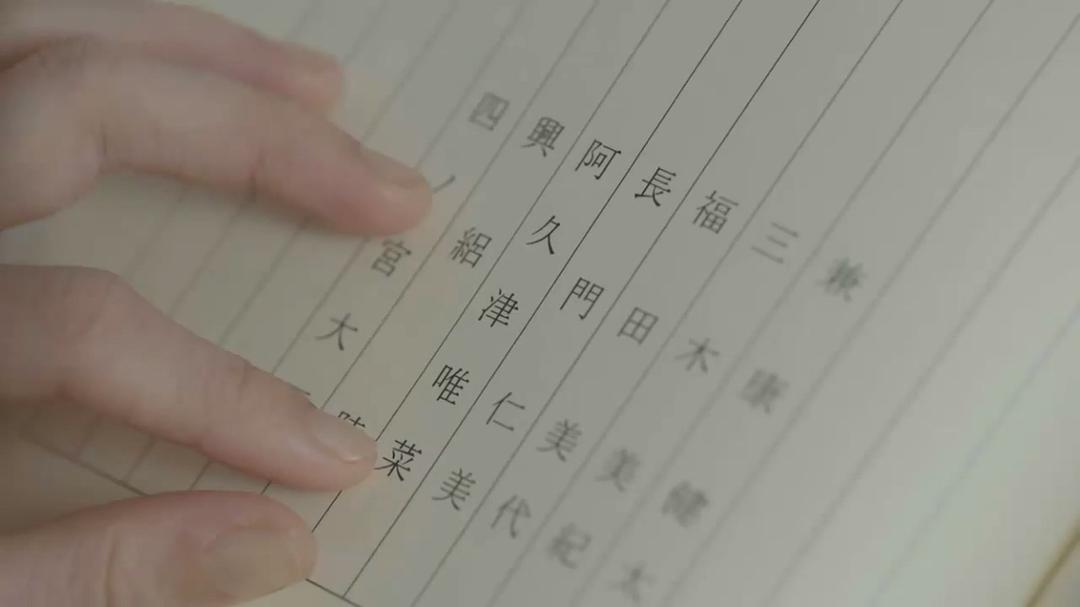 兼康健太
三木美紀
福田美代
長門仁美
阿久津唯菜
興絽
四ノ宮大